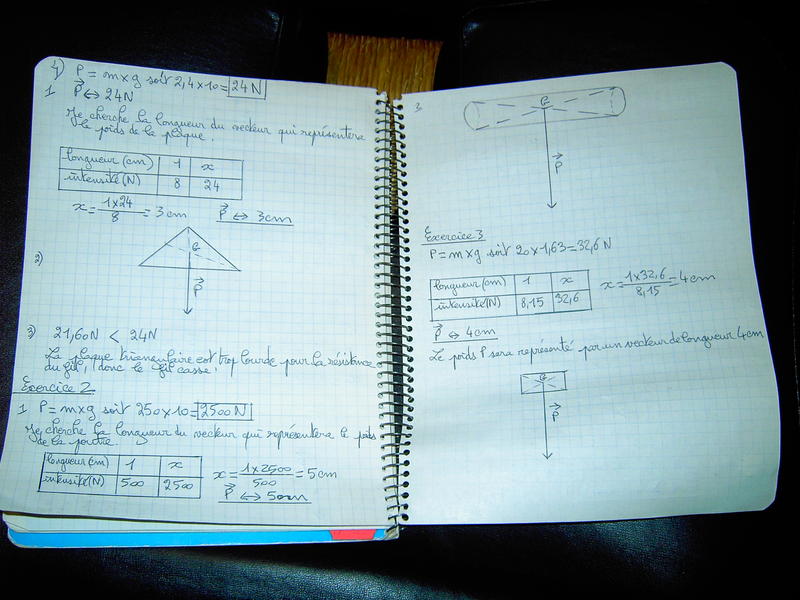 1) P = m×g soit 2,4×10 = 24N
1 P ↔ 24N
Je cherche la longueur du vecteur qui représentera
le poids de la plaque.
longueur (cm) 1 x
intensité (N) 8 24
x = 1×24/8 = 3 cm P ↔ 3cm
2)
G
P
3) 21,60N < 24N
La plaque triangulaire est trop lourde pour la résistance
du fil, donc le fil casse.
Exercice 2
1 P = m×g soit 250×10 = 2500N
Je cherche la longueur du vecteur qui représentera le poids
de la poutre.
longueur (cm) 1 x
intensité (N) 500 2500
x = 1×2500/500 = 5cm
P ↔ 5cm
3.
G
P
Exercice 3
P = m×g soit 20×1,63 = 32,6 N
longueur (cm) 1 x
intensité (N) 8,15 32,6
x = 1×32,6/8,15 = 4cm
P ↔ 4cm
Le poids P sera représenté par un vecteur de longueur 4cm
G
P